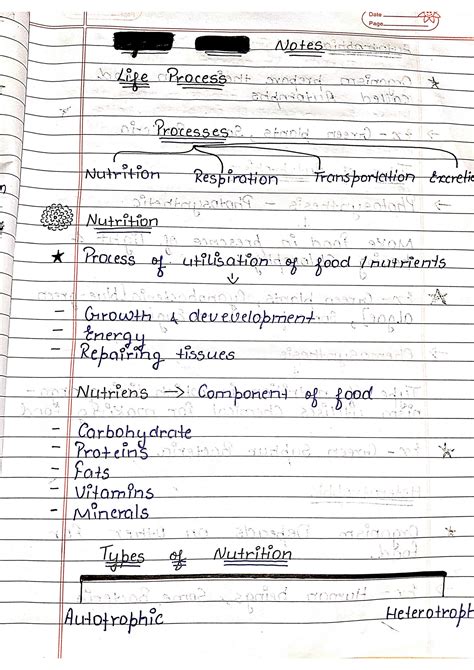 Date
Page
Notes
Life Process
Processes
Nutrition Respiration Transportation Excretio
Nutrition
★ Process of utilisation of food / nutrients
↓
- Growth & devevelopment
- Energy
- Repairing tissues
Nutriens → Component of food
- Carbohydrate
- Proteins
- Fats
- Vitamins
- Minerals
Types of Nutrition
Autotrophic Heterotroph